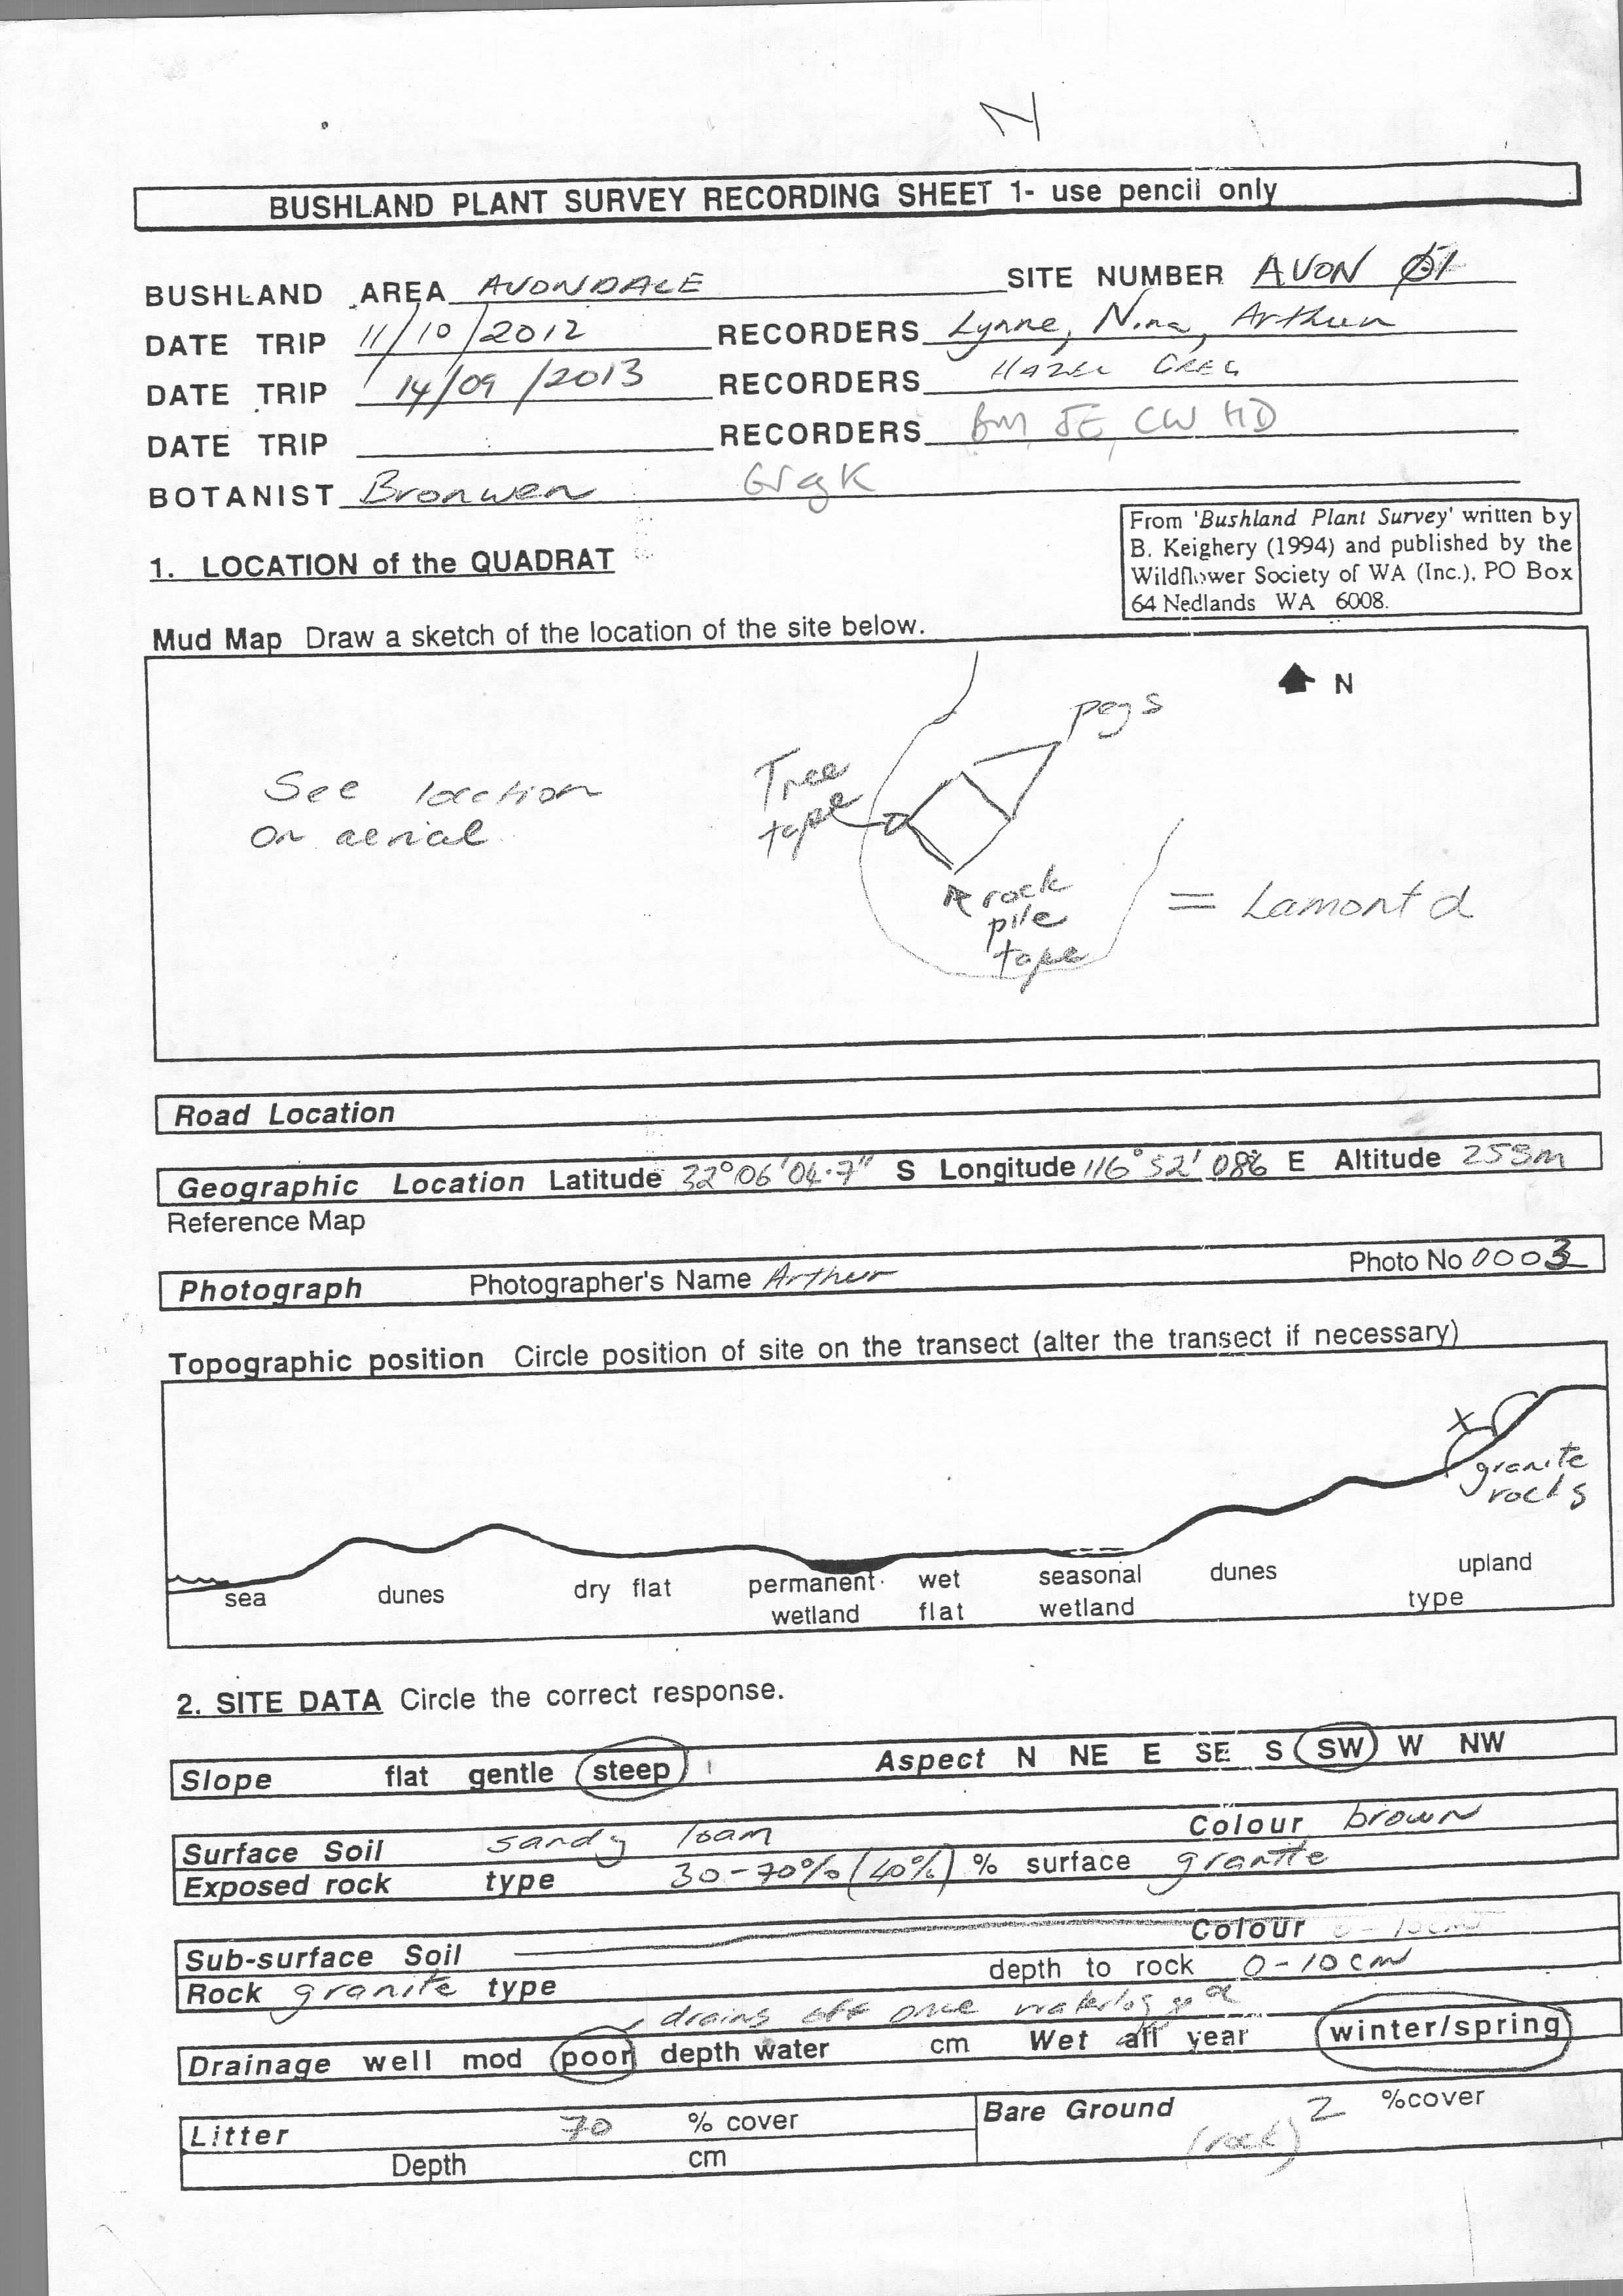 N
BUSHLAND PLANT SURVEY RECORDING SHEET 1- use pencil only
BUSHLAND AREA AVONDALE SITE NUMBER AVON 01
DATE TRIP 11/10/2012 RECORDERS Lynne, Nina, Arthur
DATE TRIP 14/09/2013 RECORDERS HAZEL GREG
DATE TRIP RECORDERS BM, JE, CW HD
BOTANIST Bronwen GregK
From 'Bushland Plant Survey' written by
B. Keighery (1994) and published by the
Wildflower Society of WA (Inc.), PO Box
64 Nedlands WA 6008.
1. LOCATION of the QUADRAT
Mud Map Draw a sketch of the location of the site below.
N
pegs
Tree
tape
See location
on aerial
rock
pile
tape
= Lamont d
Road Location
Geographic Location Latitude 32°06'04.7" S Longitude 116°52'086 E Altitude 258m
Reference Map
Photograph Photographer's Name Arthur Photo No 0003
Topographic position Circle position of site on the transect (alter the transect if necessary)
X
granite
rocks
sea dunes dry flat permanent wetland wet flat seasonal wetland dunes upland
type
2. SITE DATA Circle the correct response.
Slope flat gentle steep Aspect N NE E SE S SW W NW
Surface Soil sandy loam Colour brown
Exposed rock type 30-70% (40%) % surface granite
Sub-surface Soil Colour 0-10cm
Rock granite type depth to rock 0-10cm
drains off once waterlogged
Drainage well mod poor depth water cm Wet all year winter/spring
Litter 70 % cover Bare Ground (rock) 2 %cover
Depth cm